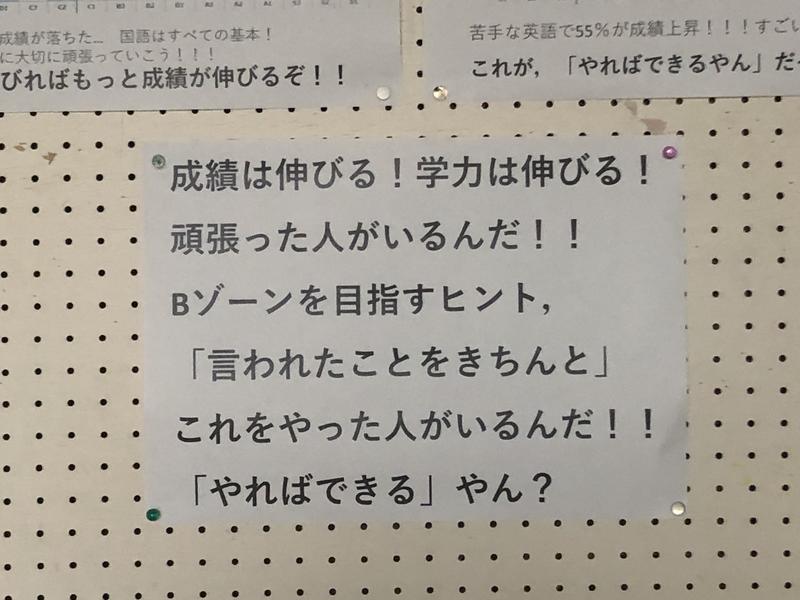 成績が落ちた… 国語はすべての基本！
に大切に頑張っていこう！！！
びればもっと成績が伸びるぞ！！
苦手な英語で55％が成績上昇！！！すごい
これが，「やればできるやん」だ
成績は伸びる！学力は伸びる！
頑張った人がいるんだ！！
Bゾーンを目指すヒント，
「言われたことをきちんと」
これをやった人がいるんだ！！
「やればできる」やん？